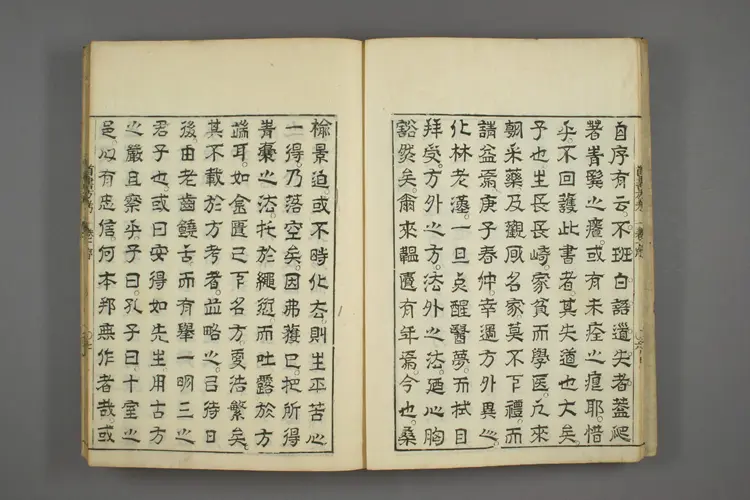 自序有云。不班白語道失者。蓋爬
著青囊之癢。或有未痊之疽耶。惜
乎不回護此書者其失道也大矣。
子也生長長崎。家貧而學医。凢來
朝采藥及觀風名家莫不下禮。而
請益焉。庚子春仲幸遇方外異人。
化林老漢。一旦点醒醫夢。而拭目
拜受。方外之方。法外之法。廼心胸
豁然矣。爾來韞匵有年焉。今也。桑
榆景迫。或不時化去。則生平苦心
一得。乃落空矣。因弗獲已。把所得
青囊之法。托於繩愆。而吐露於方
端耳。如盒匱已下名方。更浩繁矣。
其不載於方考者。並略之。以待日
後由老齒饒舌而有舉一明三之
君子也。或曰安得如先生用古方
之嚴且察乎。子曰。孔子曰。十室之
邑。必有忠信。何本邦無作者哉。或